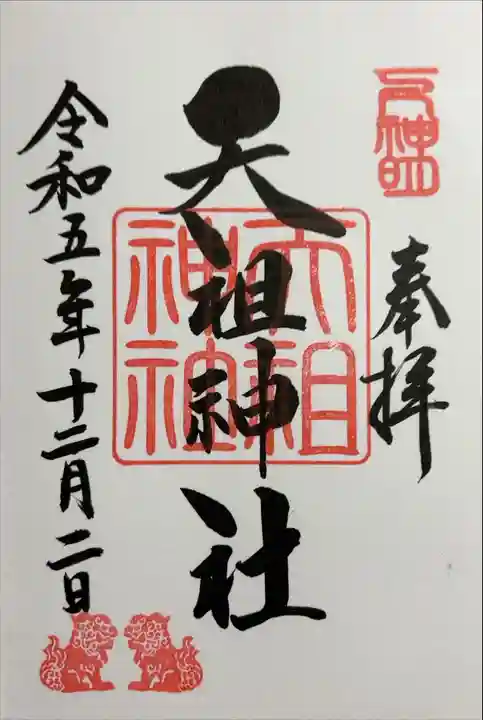 奉拝
天祖神社
天祖神社
令和五年十二月二日